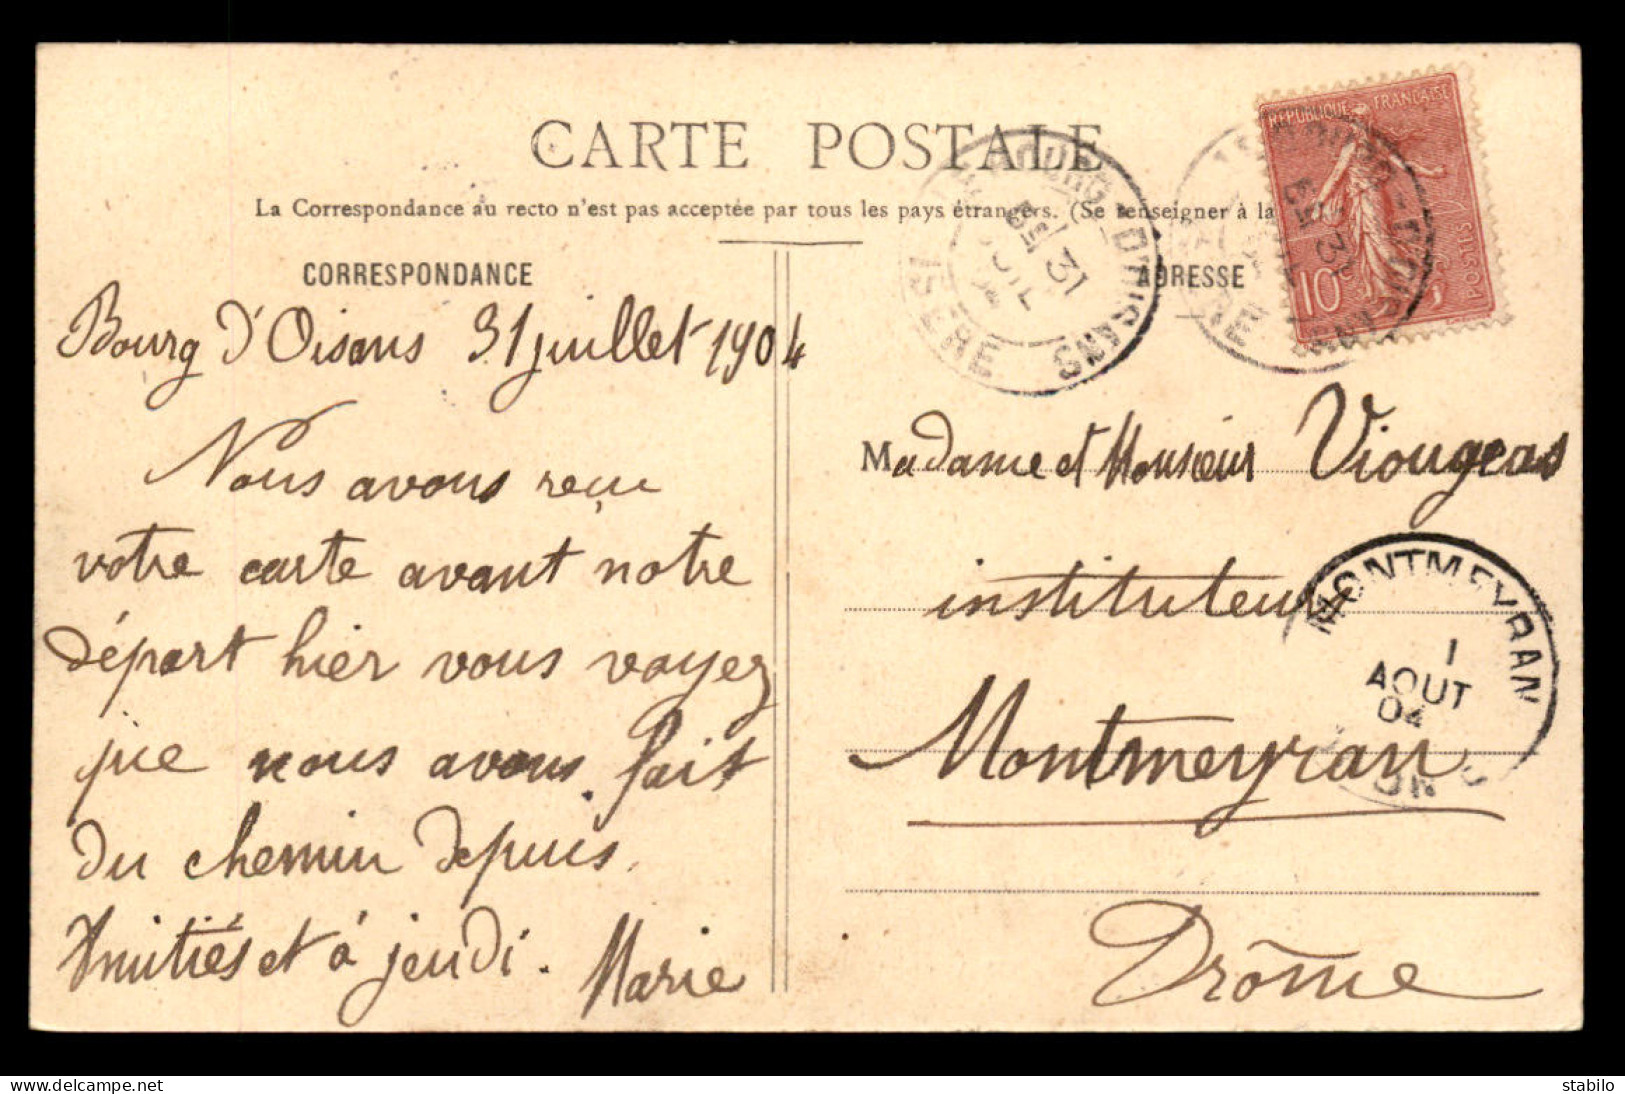 CARTE POSTALE
La Correspondance au recto n'est pas acceptée par tous les pays étrangers. (Se renseigner à la
CORRESPONDANCE
Bourg d'Oisans 31 juillet 1904
Nous avons reçu
votre carte avant notre
départ hier vous voyez
que nous avons fait
du chemin depuis.
Amitiés et à jeudi. Marie
ADRESSE
REPUBLIQUE FRANÇAISE
POSTES
10c
BOURG-D'OISANS
31
ISÈRE
BOURG-D'OISANS
31
Madame et Monsieur Viougeas
instituteur
Montmeyran
Drôme
MONTMEYRAN
1
AOUT
04
stabilo